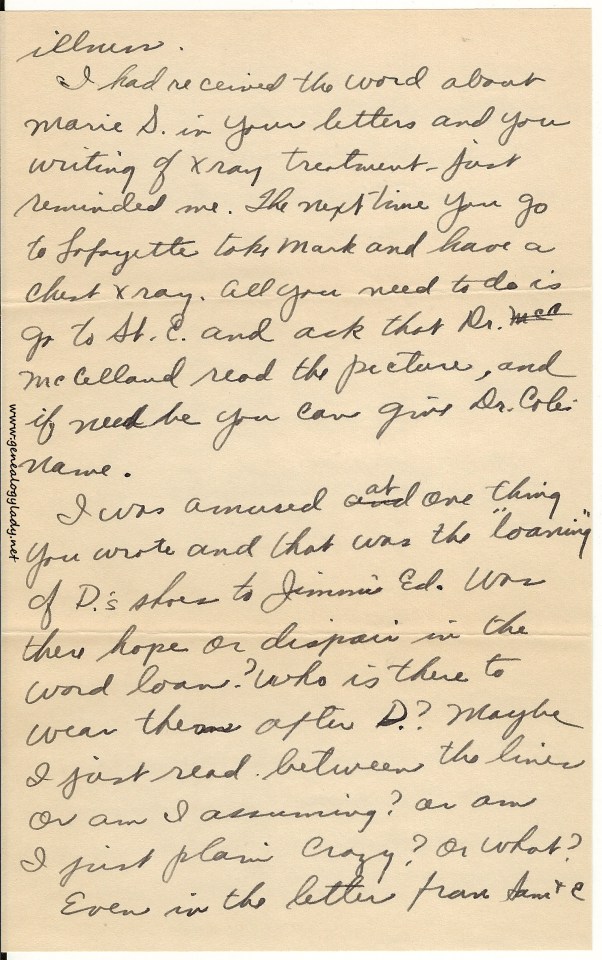 illness.
I had received the word about
Marie S. in your letters and you
writing of X ray treatment - just
reminded me. The next time you go
to Lafayette take Mark and have a
chest X ray. All you need to do is
go to St. E. and ask that Dr. McC
McClelland read the picture, and
if need be you can give Dr. Coles
name.
I was amused and at one thing
you wrote and that was the "loaning"
of D.'s shoes to Jimmie Ed. Was
there hope or dispair in the
word loan? Who is there to
wear them after D.? Maybe
I just read between the lines
or am I assuming? or am
I just plain crazy? Or what?
Even in the letter from Sam + C
www.genealogylady.net